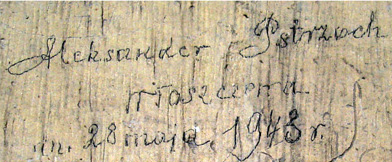 Aleksander Pstrzoch
Włoszczowa
dn. 28 maja, 1943 r.